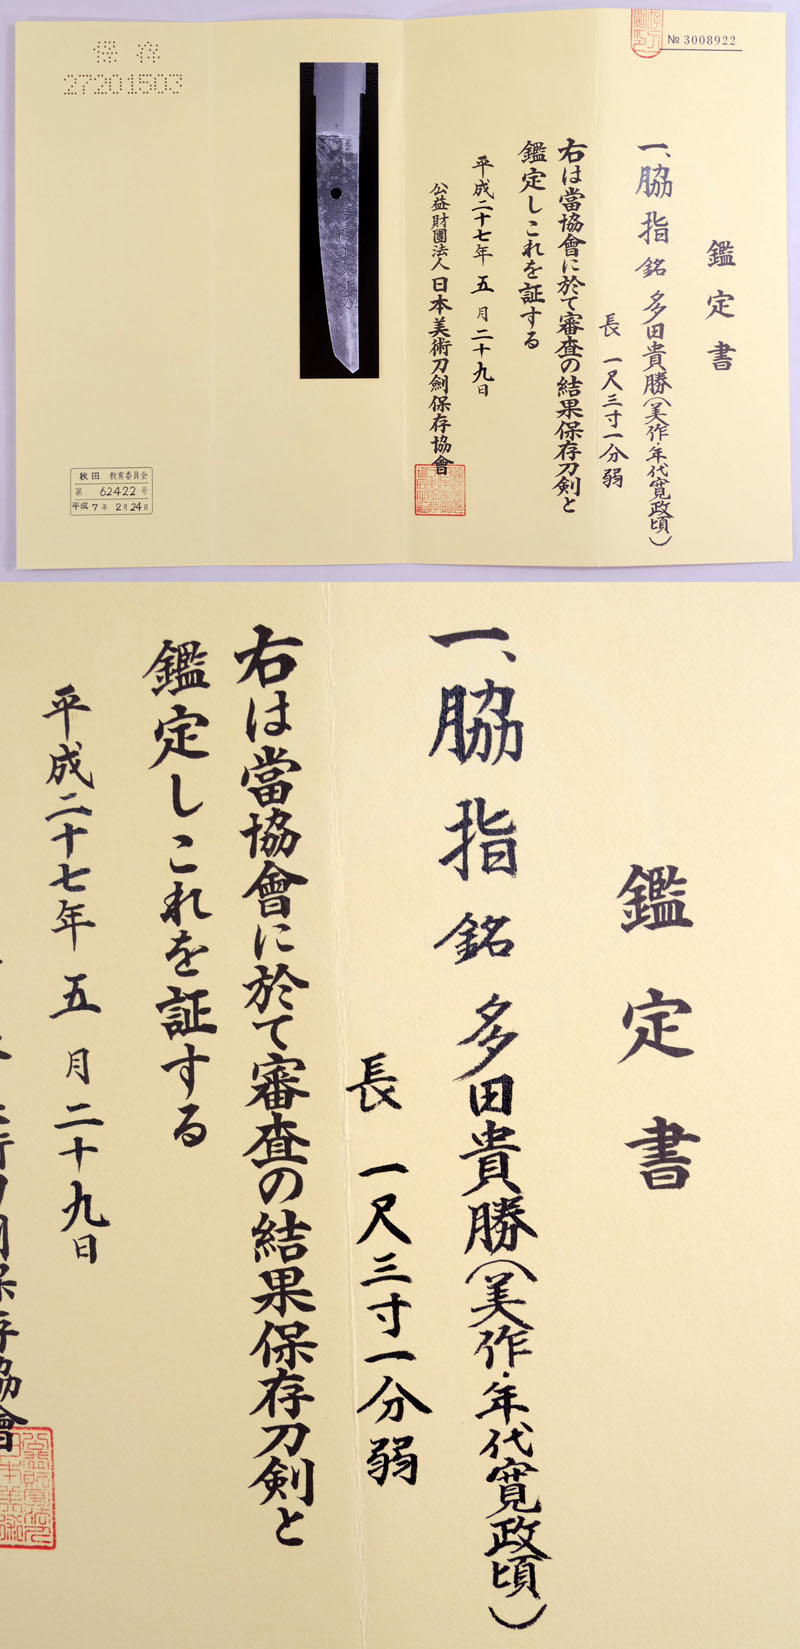 № 3008922
鑑定書
一、脇指 銘 多田貴勝(美作・年代寛政頃)
長 一尺三寸一分弱
右は當協會に於て審査の結果保存刀剣と
鑑定しこれを証する
平成二十七年 五 月 二十九日
公益財團法人 日本美術刀劍保存協會
保存
27201503
秋田 教育委員会
第 62422 号
平成 7年 2月24日
鑑定書
一、脇指 銘 多田貴勝(美作・年代寛政頃)
長 一尺三寸一分弱
右は當協會に於て審査の結果保存刀剣と
鑑定しこれを証する
平成二十七年 五 月 二十九日